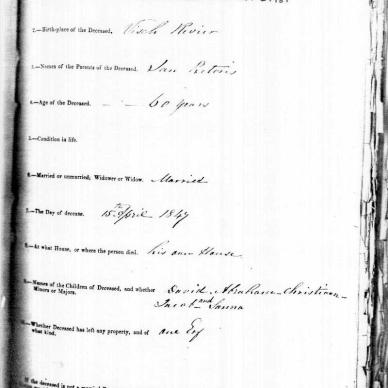 2.—Birth-place of the Deceased. Visch Rivier
3.—Names of the Parents of the Deceased. Jan
4.—Age of the Deceased. 60 years
5.—Condition in life.
6.—Married or unmarried, Widower or Widow. Married
7.—The Day of decease. 15th April 1847
8.—At what House, or where the person died. his own House
9.—Names of the Children of Deceased, and whether David - Abraham - Christiaan -
Minors or Majors. Jacob and Sanna
10.—Whether Deceased has left any property, and of one
what kind.
If the deceased is not a